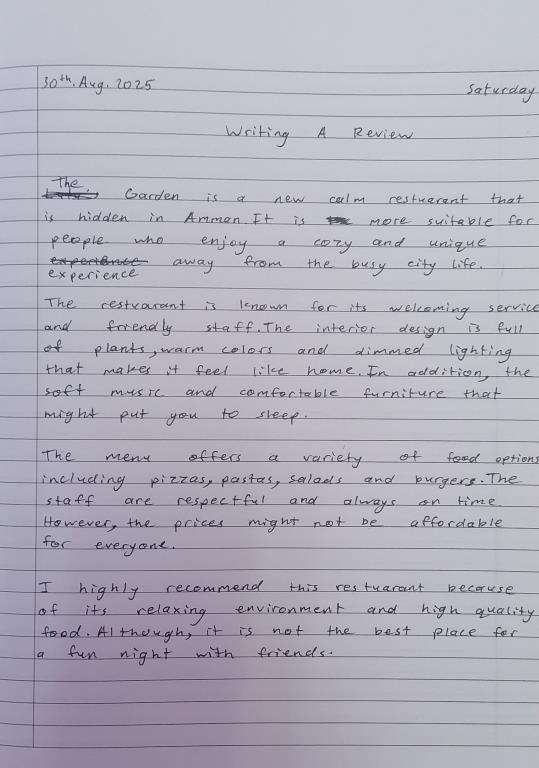 30th. Aug. 2025 Saturday
Writing A Review
The
Garden is a new calm restuarant that
is hidden in Amman. It is more suitable for
people who enjoy a cozy and unique
experience away from the busy city life.
experience
The restuarant is known for its welcoming service
and friendly staff. The interior design is full
of plants, warm colors and dimmed lighting
that makes it feel like home. In addition, the
soft music and comfortable furniture that
might put you to sleep.
The menu offers a variety of food options
including pizzas, pastas, salads and burgers. The
staff are respectful and always on time.
However, the prices might not be affordable
for everyone.
I highly recommend this restuarant because
of its relaxing environment and high quality
food. Although, it is not the best place for
a fun night with friends.